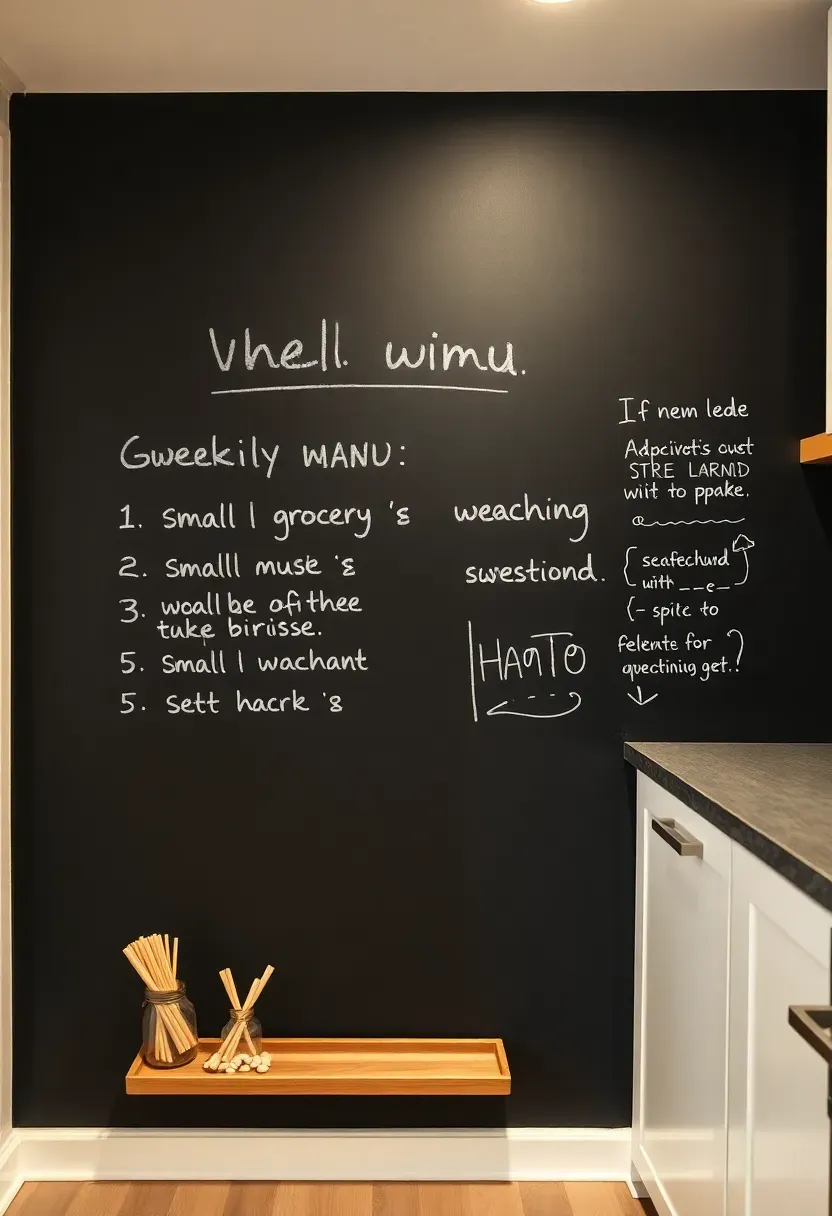 Vhell. wimu.
Gweekily MANU:
1. Small l grocery 's
2. Smalll muse 's
3. woall be ofithee
tuke birisse.
5. Small l wachant
5. Sett hacrk 's
weaching
swestiond.
HAqTO
If nem lede
Adpcivot's oust
STRE LARND
wiit to ppake.
seafechurd
with __e_
(- spite to
felenate for
quectiniug get.?